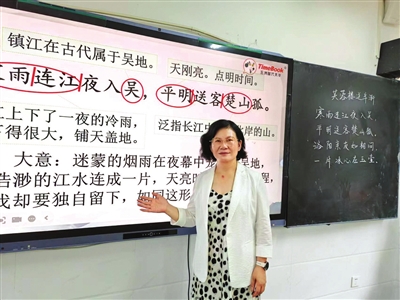 镇江在古代属于吴地。
天刚亮。点明时间。
TimeBook
雨连江夜入吴，平明送客楚山孤。
上下了一夜的冷雨，
下得很大，铺天盖地。
泛指长江中 岸的山。
大意：迷蒙的烟雨在夜幕中 吴地，
浩渺的江水连成一片，天亮
我却要独自留下，如同这形
芙蓉楼送辛渐
寒雨连江夜入吴，
平明送客楚山孤。
洛阳亲友如相问，
一片冰心在玉壶。